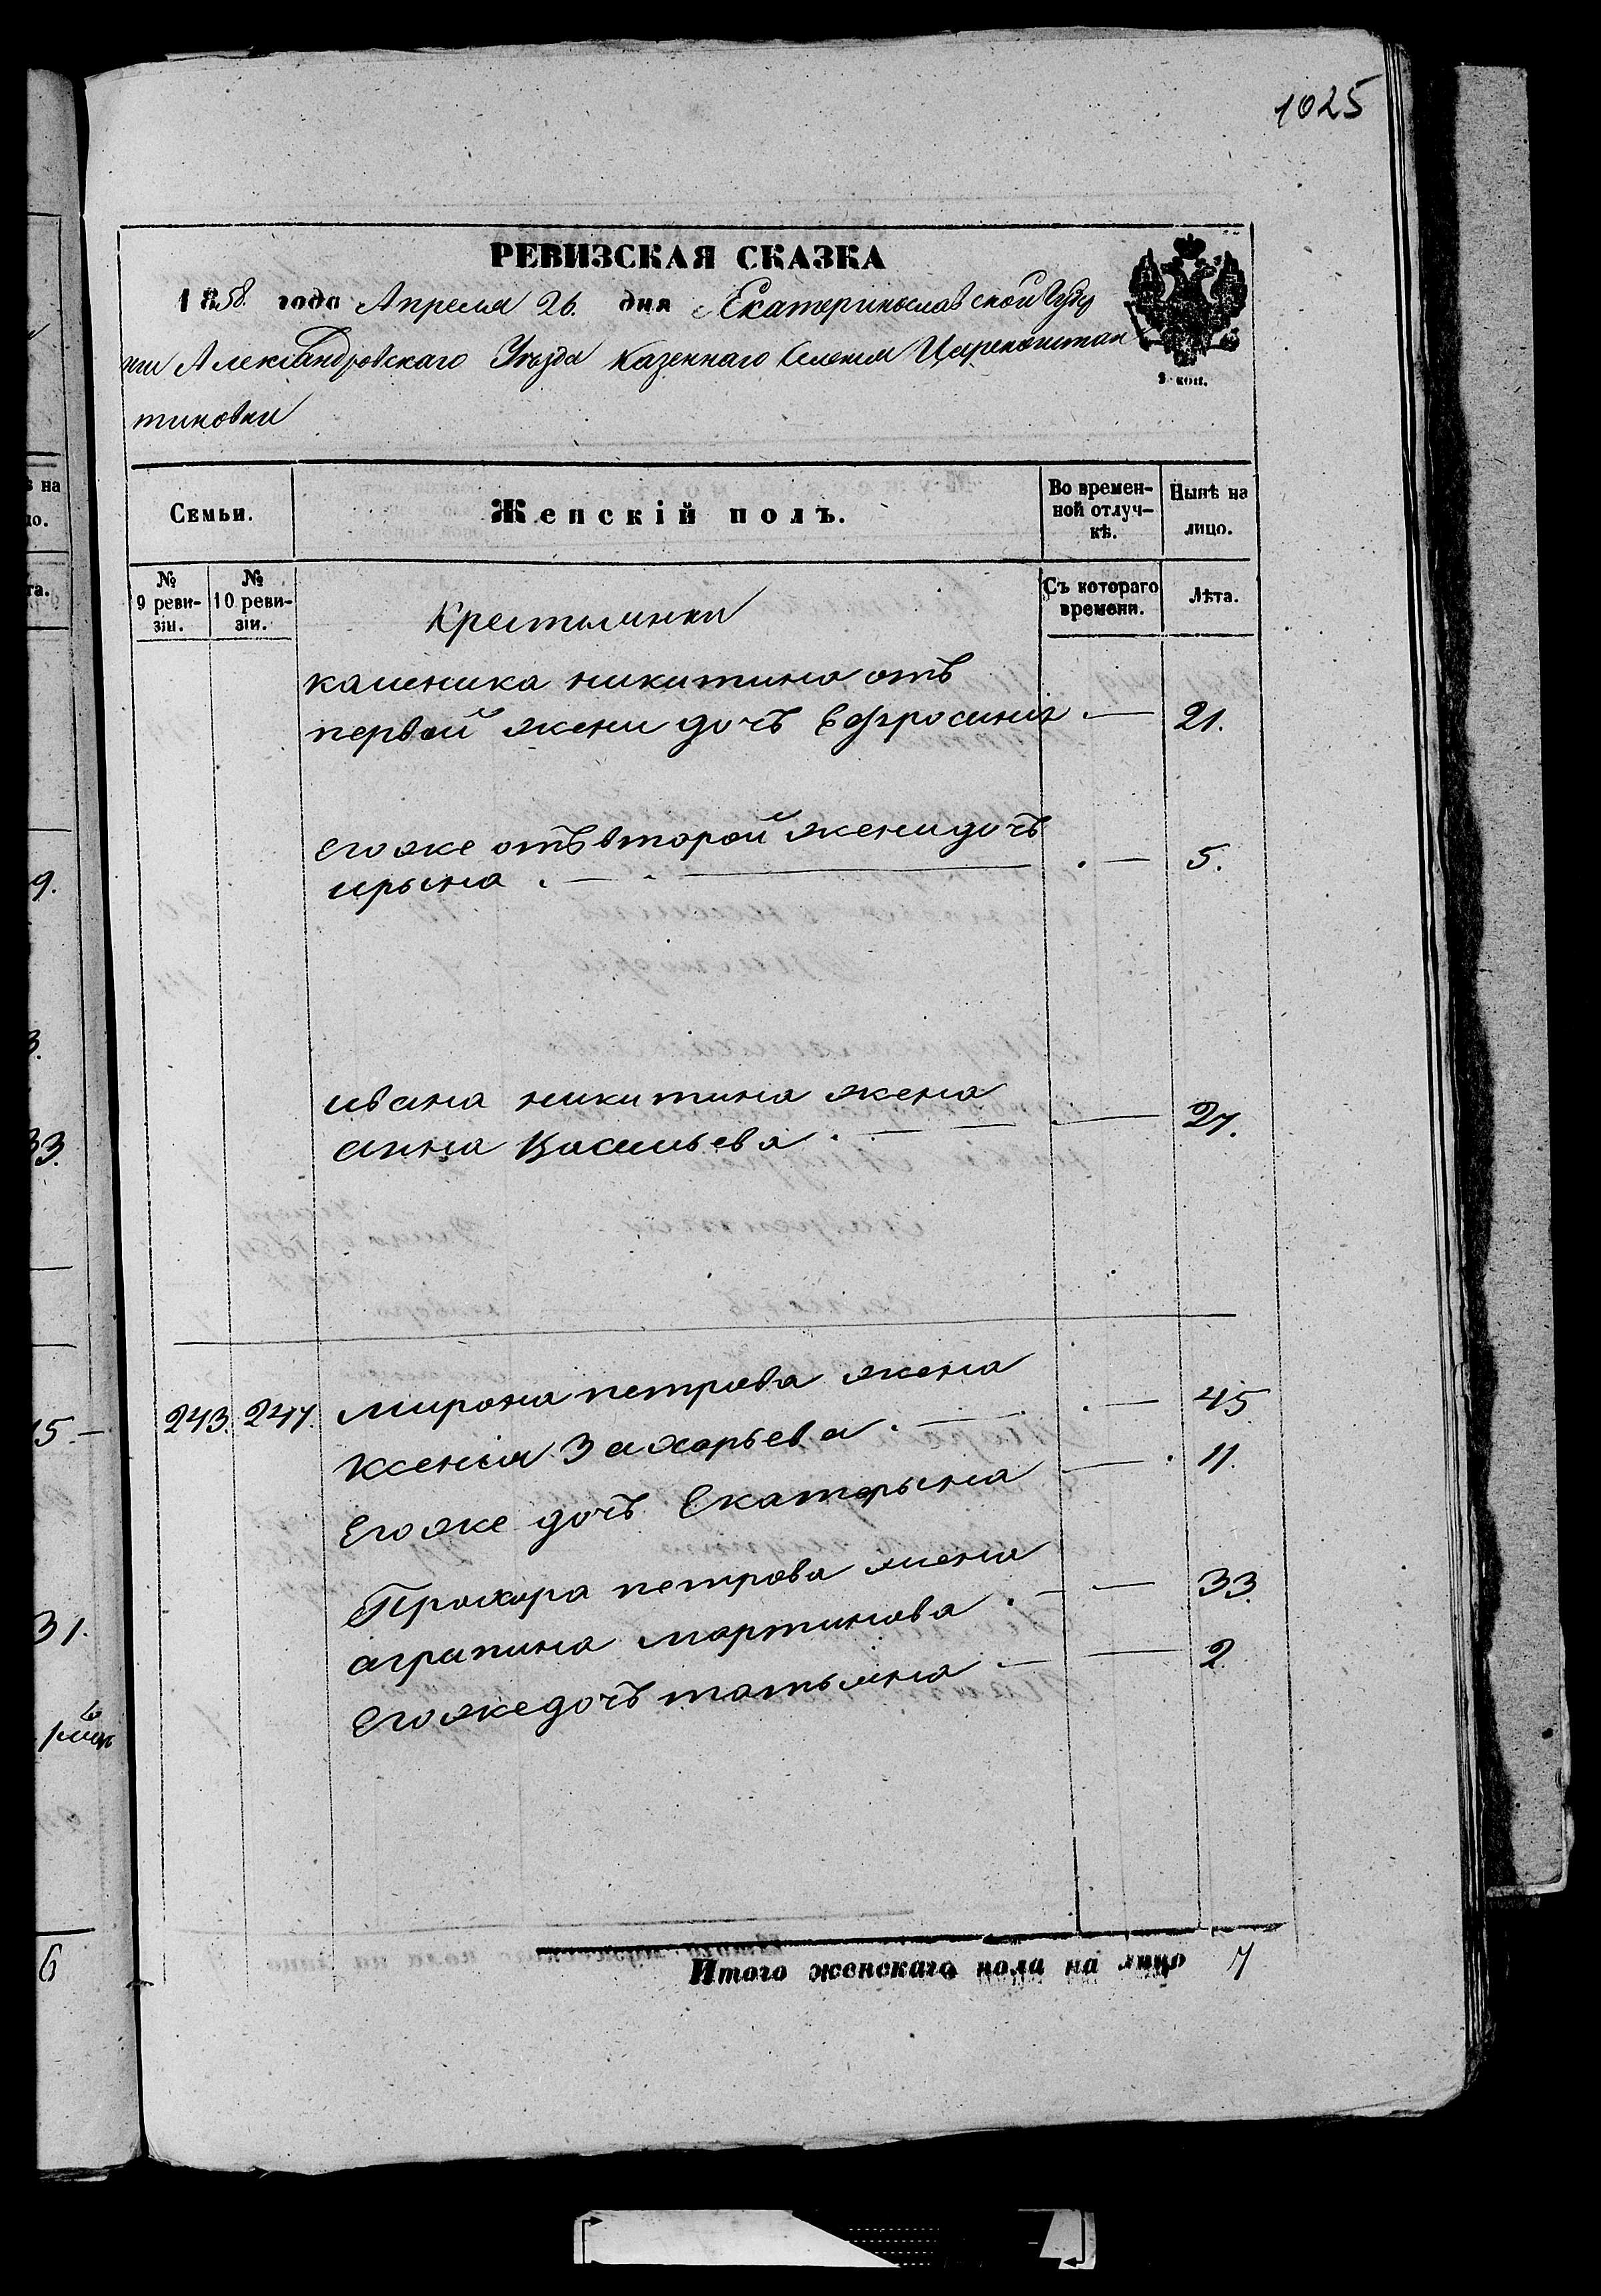 1025
РЕВИЗСКАЯ СКАЗКА
1858. года Апреля 26. дня Екатеринославской Губер
нии Александровскаго Уѣзда казеннаго селенія Цареконстан
тиновки
9 коп.
Семьи.
Женскій полъ.
Во времен-
ной отлуч-
кѣ.
Нынѣ на
лицо.
№
9 реви-
зіи.
№
10 реви-
зіи.
Съ котораго
времени.
Лѣта.
Крестьянки
каленика никитина отъ
первой жени дочъ Ефросиния — 21.
егоже отъ второй жени дочъ
ирына — 5.
ивана никитина жена
анна Васильева — 27.
243. 247. мирона петрова жена
Ксенія Захарьева — 45
Егоже дочъ Екатерына — 11.
Прохора петрова жена
аграпина мартинова — 33.
Егоже дочъ татьяна — 2
Итого женскаго пола на лицо 7
на
ло.
та.
9.
3.
33.
15.
31.
6